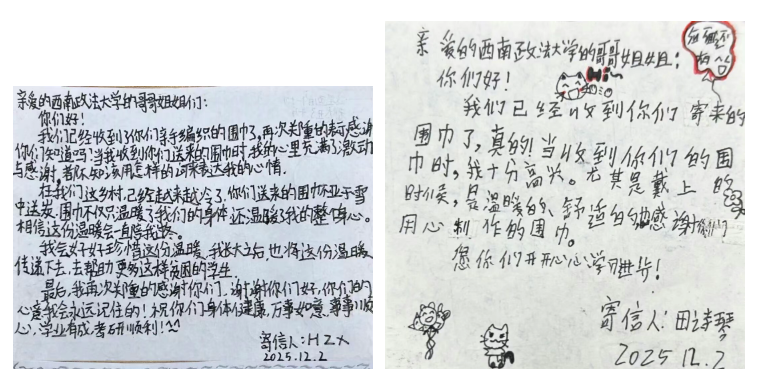 亲爱的西南政法大学的哥哥姐姐们：
你们好！
我们已经收到了你们亲手编织的围巾了，再次关隆的表示感谢
你们知道吗？当我收到你们送来的围巾时，我的心里充满了激动
与感谢，都不知该用怎样的词来表达我的心情。
在我们这乡村，已经越来越冷了，你们送来的围巾亚于雪
中送炭，围巾不仅温暖了我们的身体，还温暖了我的整个身心。
相信这份温暖会一直陪我
我会好好珍惜这份温暖，我长大后，也将这份温暖
传递下去，去帮助更多这样贫困的学生
最后，我再次关隆的感谢你们，谢谢你们好，你们的
心意我会永远记住的！祝你们身体健康，万事如意，事事顺
心，学业有成，考研顺利！^^
寄信人：HZX
2025.12.2
亲爱的西南政法大学的哥哥姐姐：
你们好！
Hi~
我们已经收到你们寄来的
围巾了，真的！当收到你们的围
巾时，我十分高兴。尤其是戴上的
时候，是温暖的、舒适的感谢你们
用心制作的围巾。
您你们开开心心学习进步！
寄信人：田诗琴
2025 12.2